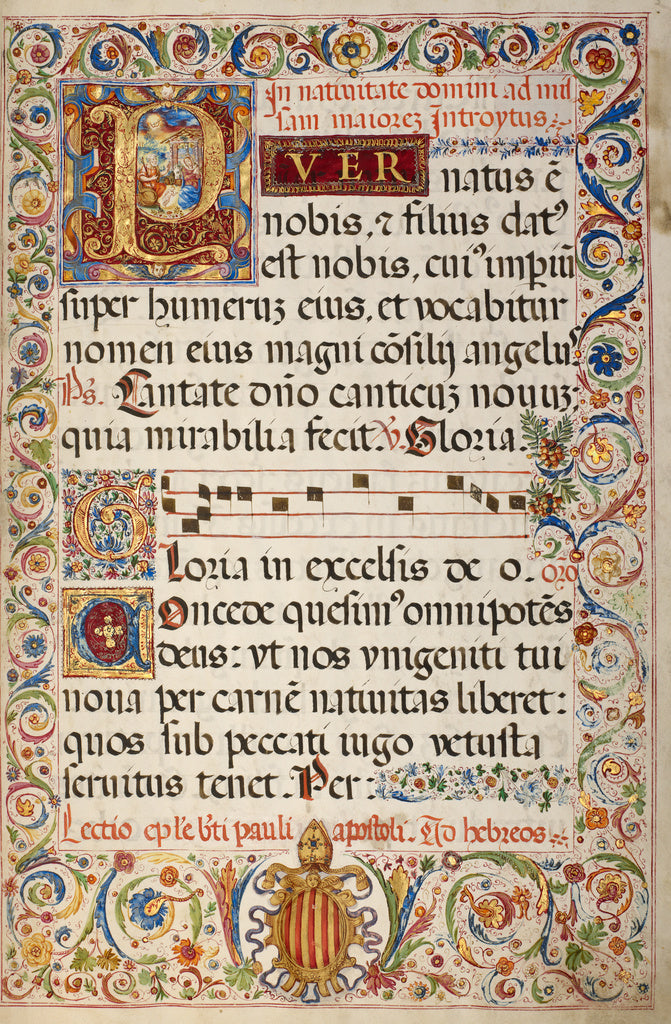 In natiuitate domini ad mis
sam maiorez Introytus
PVER
natus ē
nobis, ⁊ filius datꝰ
est nobis, cuiꝰ impiũ
super humeruz eius, et vocabitur
nomen eius magni cõsilij angelus
Ps. Cantate dño canticuz nouuz
quia mirabilia fecit. V. Gloria.
Gloria in excelsis de o. oro
Concede quesumꝰ omnipotẽs
deus: vt nos vnigeniti tui
noua per carnẽ natiuitas liberet:
quos sub peccati iugo vetusta
seruitus tenet. Per:
Lectio ep̄le b̄ti pauli apostoli. Ad hebreos